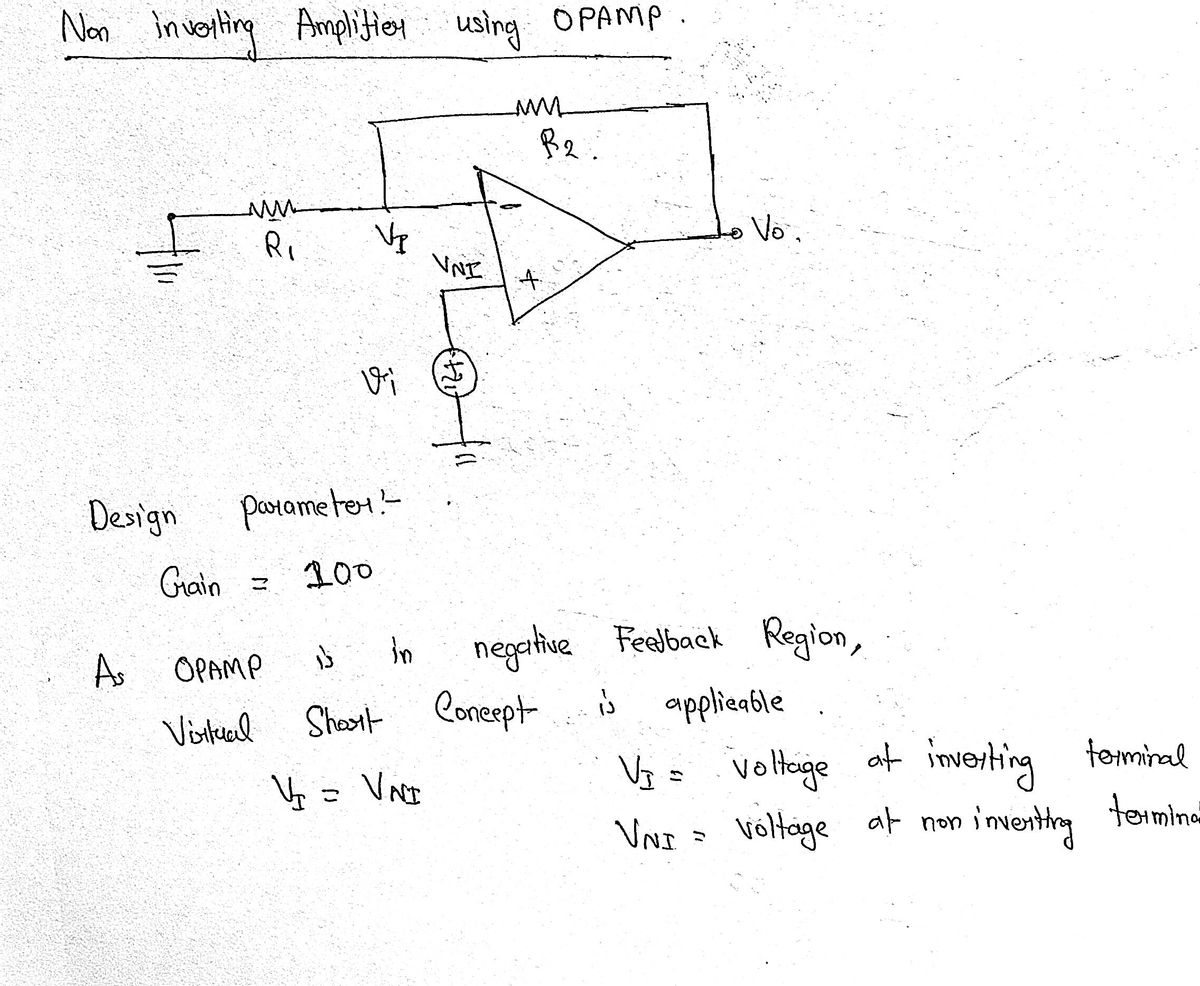 Non inverting Amplifier using OPAMP.
R2.
R1
VI
VNI
-
+
Vo.
vi
+
-
Design parameter:-
Gain = 100
As OPAMP is in negative Feedback Region,
Virtual Short Concept is applicable.
VI = VNI
VI = voltage at inverting terminal
VNI = voltage at non inverting termina